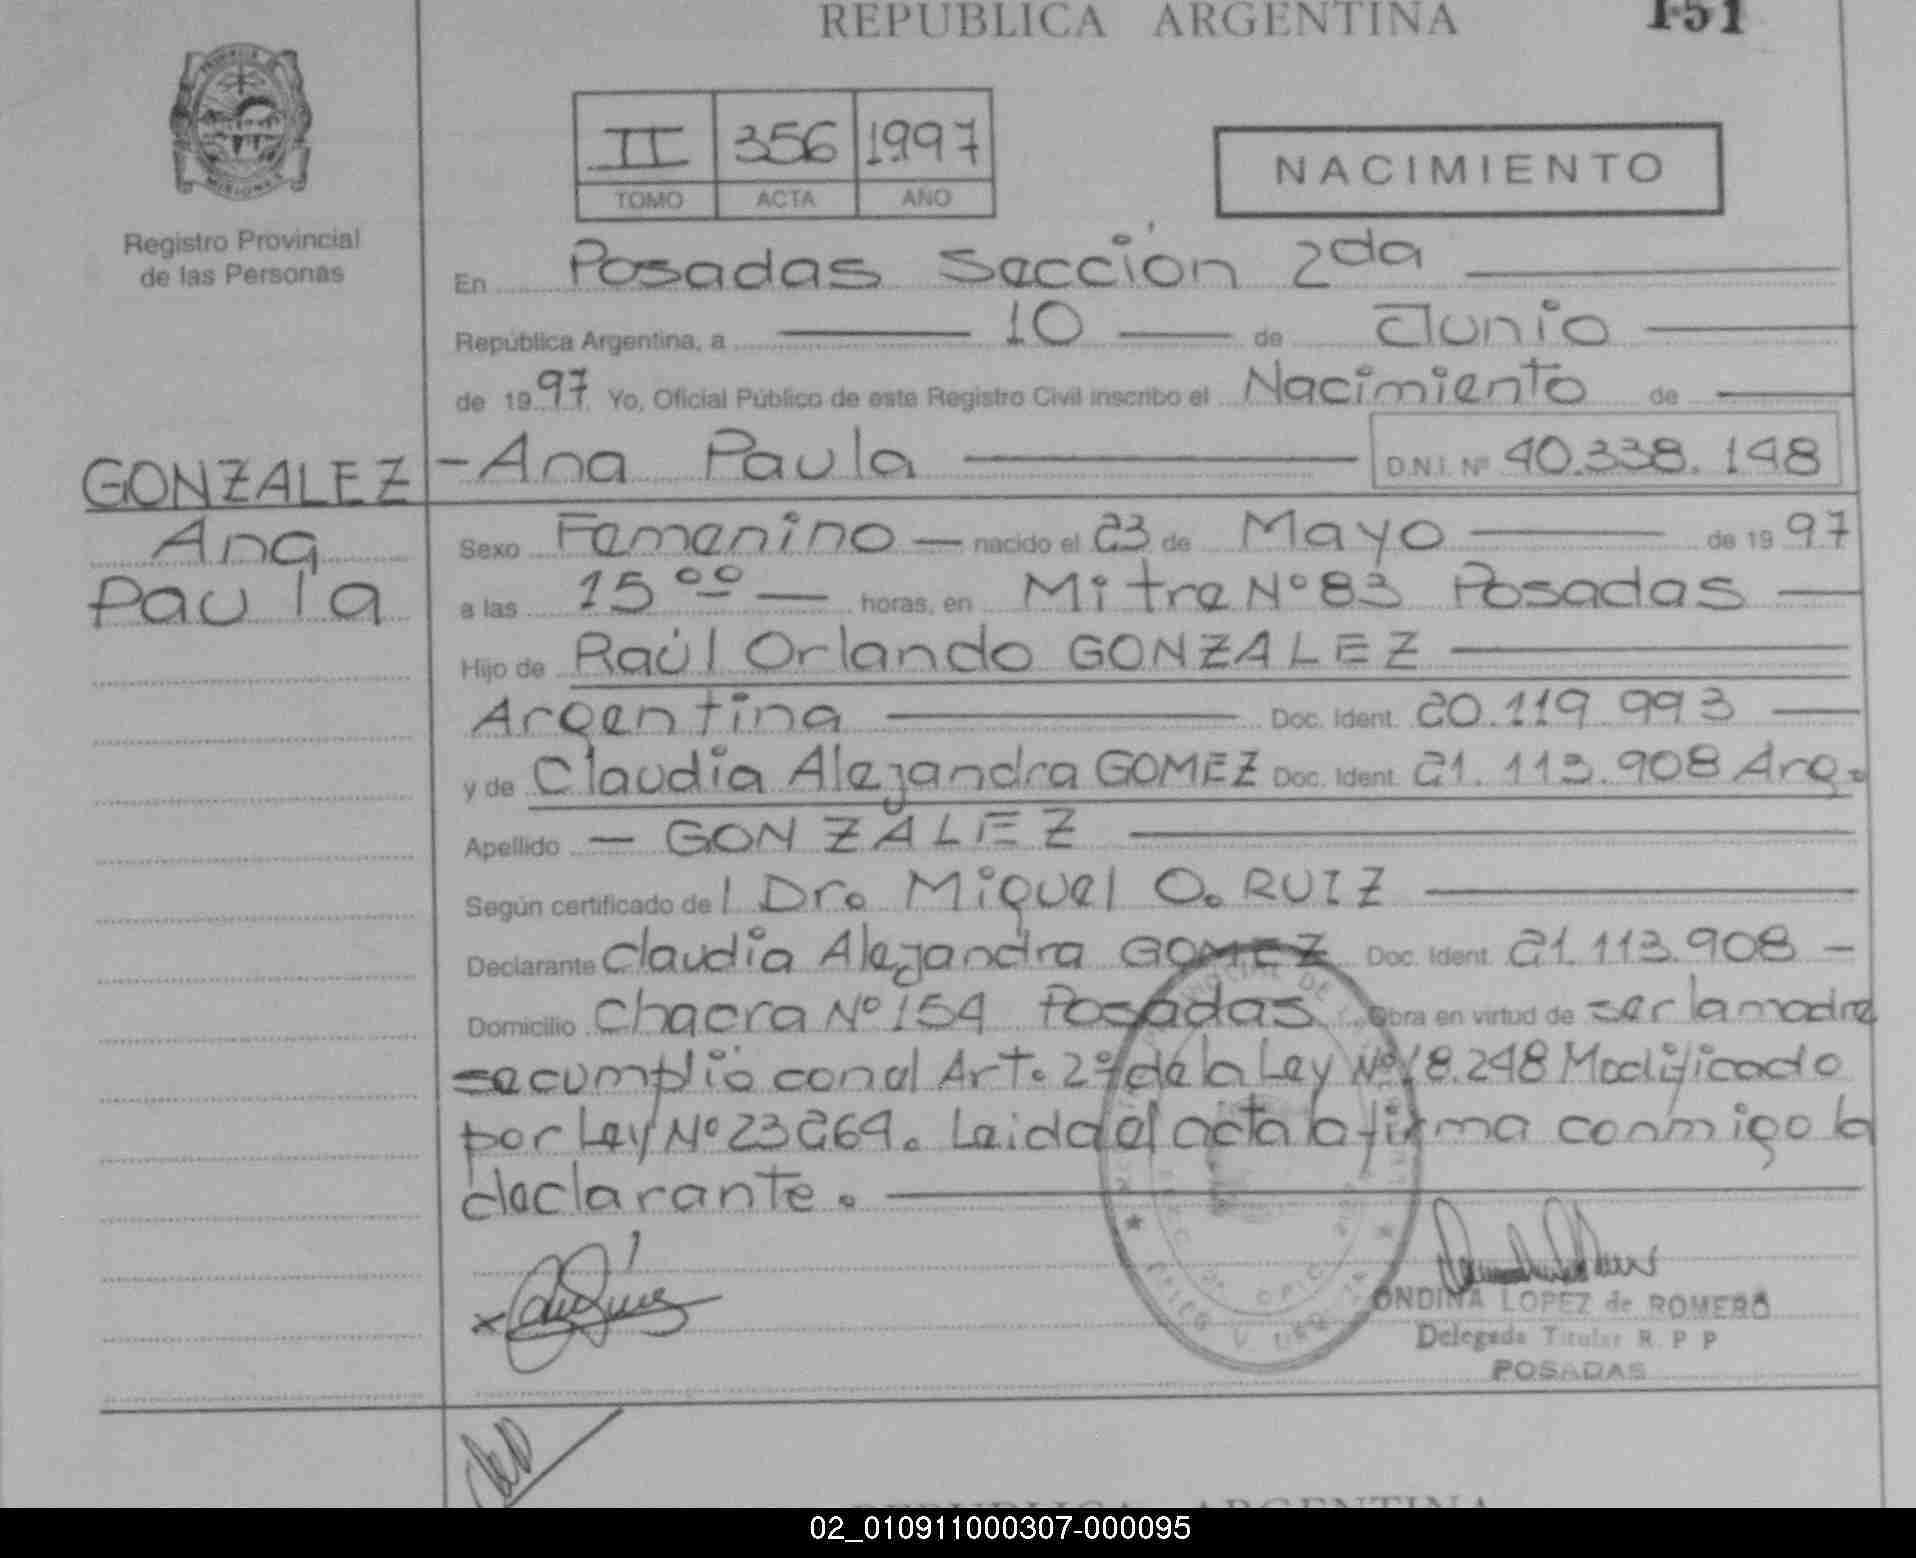 REPUBLICA ARGENTINA
151
PROVINCIA DE
MISIONES
Registro Provincial
de las Personas
II 356 1997
TOMO ACTA AÑO
NACIMIENTO
En Posadas Sección 2da
República Argentina, a 10 de Junio
de 1997 Yo, Oficial Público de este Registro Civil inscribo el Nacimiento de
GONZALEZ - Ana Paula D.N.I. Nº 40.338.148
Ana
Paula
Sexo Femenino nacido el 23 de Mayo de 1997
a las 15 00 horas, en Mitre Nº 83 Posadas
Hijo de Raúl Orlando GONZALEZ
Argentina Doc. Ident. 20.119.993
y de Claudia Alejandra GOMEZ Doc. Ident. 21.113.908 Arg.
Apellido - GONZALEZ
Según certificado del Dr. Miguel O. RUIZ
Declarante Claudia Alejandra GOMEZ Doc. Ident. 21.113.908 -
Domicilio Chacra Nº 154 Posadas Obra en virtud de ser la madre
se cumplió con el Art. 2º de la Ley Nº 18.248 Modificado
por Ley Nº 23264. Leida el acta la firma conmigo la
declarante.
ONDINA LOPEZ de ROMERO
Delegada Titular R. P P
POSADAS
REPUBLICA ARGENTINA
02_010911000307-000095